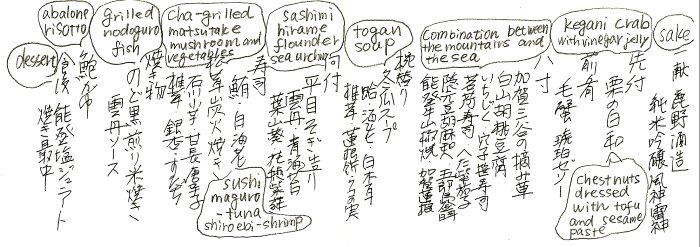 sake
一献 鹿野酒造
純米吟醸 風神雷神
先付
栗の白和へ
chestnuts
dressed
with tofu
and sesame
paste
kegani crab
with vinegar jelly
前肴
毛蟹 琥珀ゼリー
combination between
the mountains and
the sea
八寸
加賀三谷の摘み草
白山胡桃豆腐
いちじく 穴子棒寿司
茗荷寿司
隠元胡麻和え 五郎島
能登牛山椒焼 加賀蓮根
togan
soup
椀替り
冬瓜スープ
蛤・海老・白木耳
椎茸 蓮根餅
sashimi
hirame
flounder
sea urchin
向付
平目そぎ造り
雲丹・青海苔
葉山葵 花穂紫蘇
寿司
鮪・白海老
sushi
maguro
-tuna
shiroebi-shrimp
cha-grilled
matsutake
mushroom and
vegetables
松茸炭火焼き
石川芋・甘長唐辛子
椎茸 銀杏・すだち
grilled
nodoguro
fish
焼き物
のど黒煎り米焼き
雲丹ソース
abalone
risotto
dessert
食後 能登塩ジェラート
焼き最中